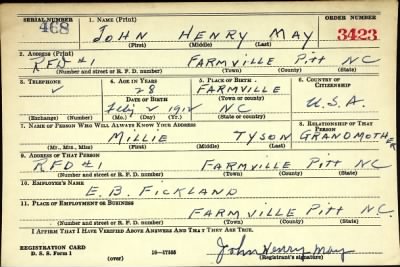 SERIAL NUMBER 1. NAME (Print) ORDER NUMBER
468 JOHN HENRY MAY 3423
(First) (Middle) (Last)
2. ADDRESS (Print)
RFD #1 FARMVILLE PITT NC
(Number and street or R. F. D. number) (Town) (County) (State)
3. TELEPHONE 4. AGE IN YEARS 5. PLACE OF BIRTH 6. COUNTRY OF CITIZENSHIP
28 FARMVILLE
DATE OF BIRTH (Town or county)
2 1912 NC U.S.A.
(Exchange) (Number) (Mo.) (Day) (Yr.) (State or country)
7. NAME OF PERSON WHO WILL ALWAYS KNOW YOUR ADDRESS 8. RELATIONSHIP OF THAT PERSON
MILLIE TYSON GRANDMOTHER
(Mr., Mrs., Miss) (First) (Middle) (Last)
9. ADDRESS OF THAT PERSON
RFD #1 FARMVILLE PITT NC
(Number and street or R. F. D. number) (Town) (County) (State)
10. EMPLOYER'S NAME
E. B. FICKLAND
11. PLACE OF EMPLOYMENT OR BUSINESS
FARMVILLE PITT NC.
(Number and street or R. F. D. number) (Town) (County) (State)
I AFFIRM THAT I HAVE VERIFIED ABOVE ANSWERS AND THAT THEY ARE TRUE.
REGISTRATION CARD
D. S. S. Form 1 (over) 16—17105 John Henry May
(Registrant's signature)